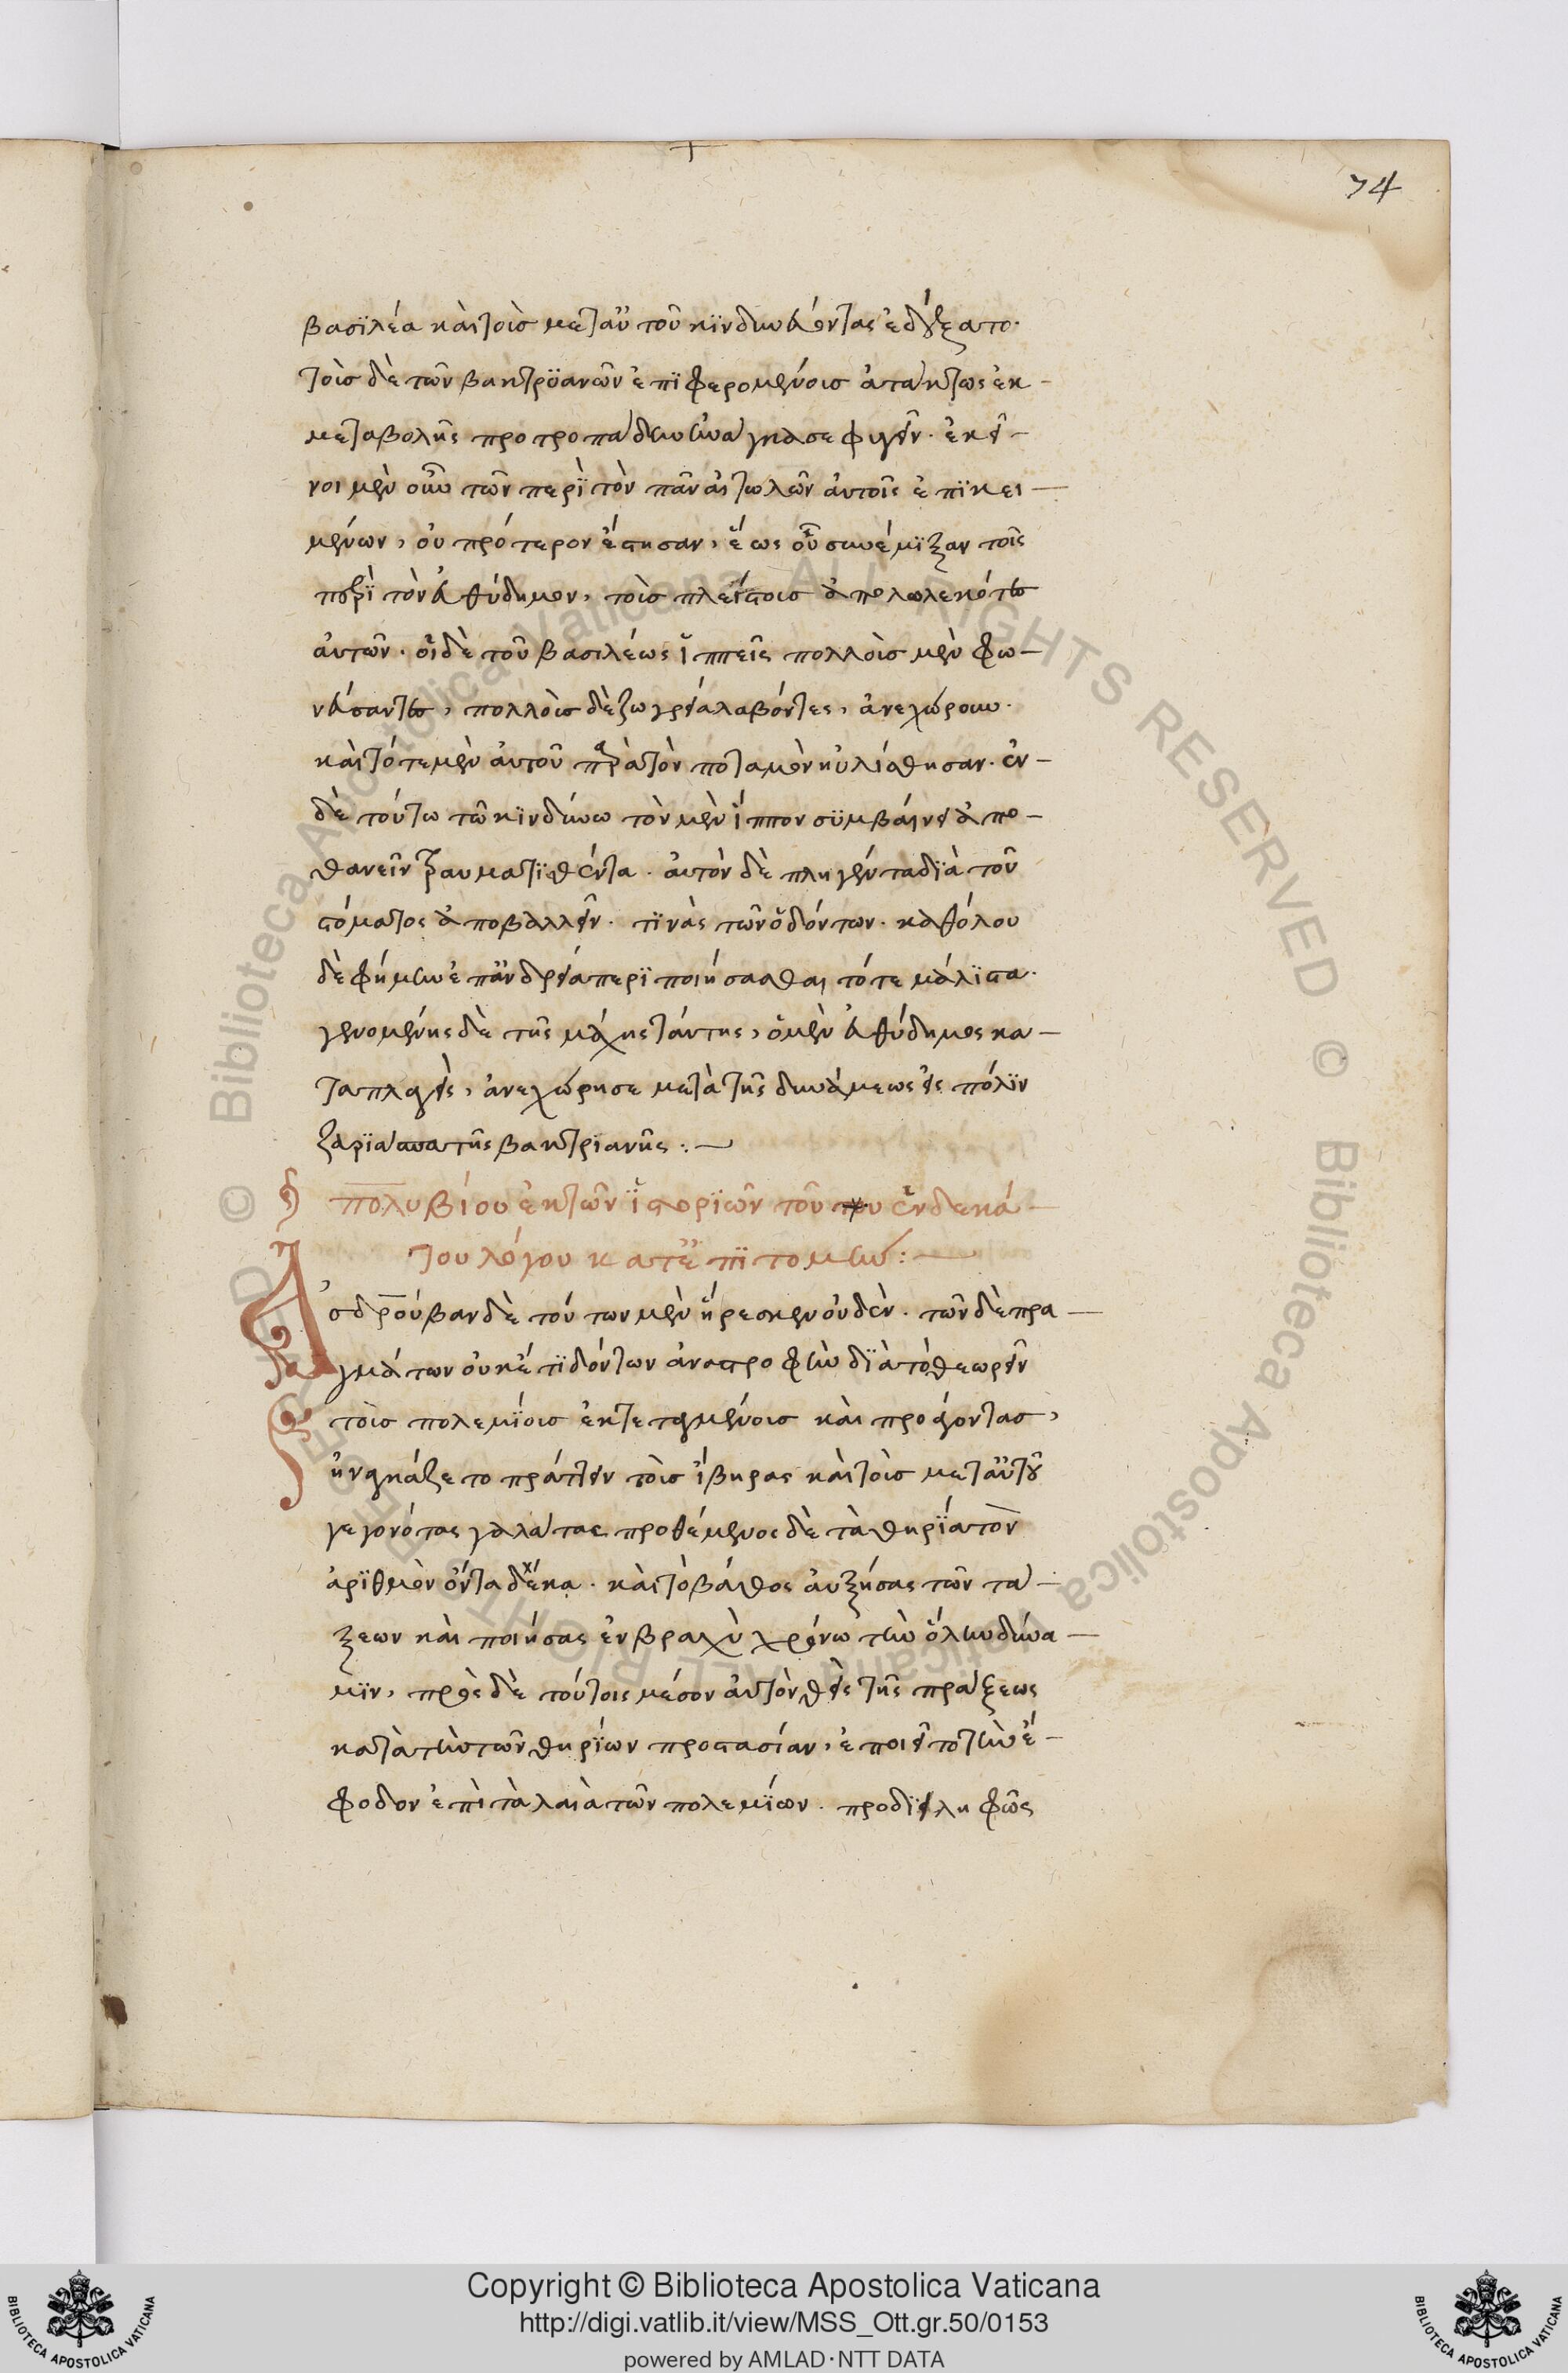 74
βασϊλέα καὶ τοὺς μετ' αὐτοῦ κϊνδυνεύοντας ἐδέξατο·
τοὺς δὲ τῶν βακτρϊανῶν ἐπϊφερομένους ἀτάκτως ἐκ
μεταβολῆς προτροπάδην ἠνάγκασε φυγεῖν. ἐκεῖ-
νοι μὲν οὖν τῶν περὶ τὸν πᾶν αἰτωλῶν αὐτοῖς ἐπϊκει
μένων, οὐ πρότερον ἔστησαν, ἕως οὗ συνέμϊξαν τοῖς
περὶ τὸν εὐθύδημον, τοὺς πλείστους ἀπολωλεκότες
αὐτῶν. οἱ δὲ τοῦ βασιλέως ἱππεῖς πολλοὺς μὲν φω-
νεύσαντες, πολλοὺς δὲ ζωγρεία λαβόντες, ἀνεχώρουν.
καὶ τότε μὲν αὐτοῦ παρὰ τὸν ποταμὸν ηὐλίσθησαν. ἐν
δὲ τούτω τῶ κϊνδύνω τὸν μὲν ἵππον συμβαίνει ἀπο-
θανεῖν τραυματϊσθέντα. αὐτὸν δὲ πληγέντα διὰ τοῦ
στόματος ἀποβαλλεῖν. τϊνὰς τῶν ὀδόντων. καθόλου
δὲ φήμην ἐπ' ἀνδρεία περϊποιήσασθαι τότε μάλϊστα.
γενομένης δὲ τῆς μάχης ταύτης, ὁ μὲν εὐθύδημος κα-
ταπλαγεὶς, ἀνεχώρησε μετὰ τῆς δυνάμεως εἰς πόλϊν
ζαρϊάσπα τῆς βακτριανῆς:—
πολυβίου ἐκ τῶν ἱστορϊῶν τοῦ ἑνδεκά-
του λόγου κατ' ἐπϊτομήν:—
Ἀσδρούβαν δὲ τούτων μὲν ἤρεσκεν οὐδέν. τῶν δὲ πρα-
γμάτων οὐκέτϊ δόντων ἀναστροφὴν δϊὰ τὸ θεωρεῖν
τοὺς πολεμϊους ἐκτεταγμένους καὶ προάγοντας,
ἠναγκάζετο πράττειν τοὺς ἴβηρας καὶ τοὺς μετ' αὐτοῦ
γεγονότας γαλάτας προθέμενος δὲ τὰ θηρϊα τὸν
ἀρϊθμὸν ὄντα δέκα. καὶ τὸ βάθος αὐξήσας τῶν τά-
ξεων καὶ ποιήσας ἐν βραχὺ χρόνω τὴν ὅλην δύνα-
μϊν, πρὸς δὲ τούτοις μέσον αὐτὸν θεὶς τῆς πράξεως
κατὰ τὴν τῶν θηρϊων προστασίαν, ἐποιεῖτο τὴν ἔ-
φοδον ἐπὶ τὰ λαιὰ τῶν πολεμϊων. προδϊειληφῶς
Copyright © Biblioteca Apostolica Vaticana
http://digi.vatlib.it/view/MSS_Ott.gr.50/0153
powered by AMLAD·NTT DATA